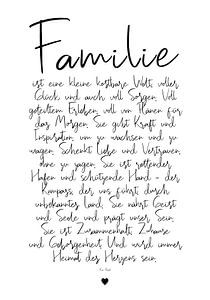 Familie
ist eine kleine kostbare Welt, voller
Glück und auch voll Sorgen. Voll
geteiltem Erleben, voll von Plänen für
das Morgen. Sie gibt Kraft und
Inspiration um zu wachsen und zu
wagen. Schenkt Liebe und Vertrauen
ohne zu sagen. Sie ist rettender
Hafen und schützende Hand - der
Kompass, der uns führt durch
unbekanntes Land. Sie nährt Geist
und Seele und prägt unser Sein.
Sie ist Zusammenhalt, Zuhause
und Geborgenheit. Und wird immer
Heimat des Herzens sein.